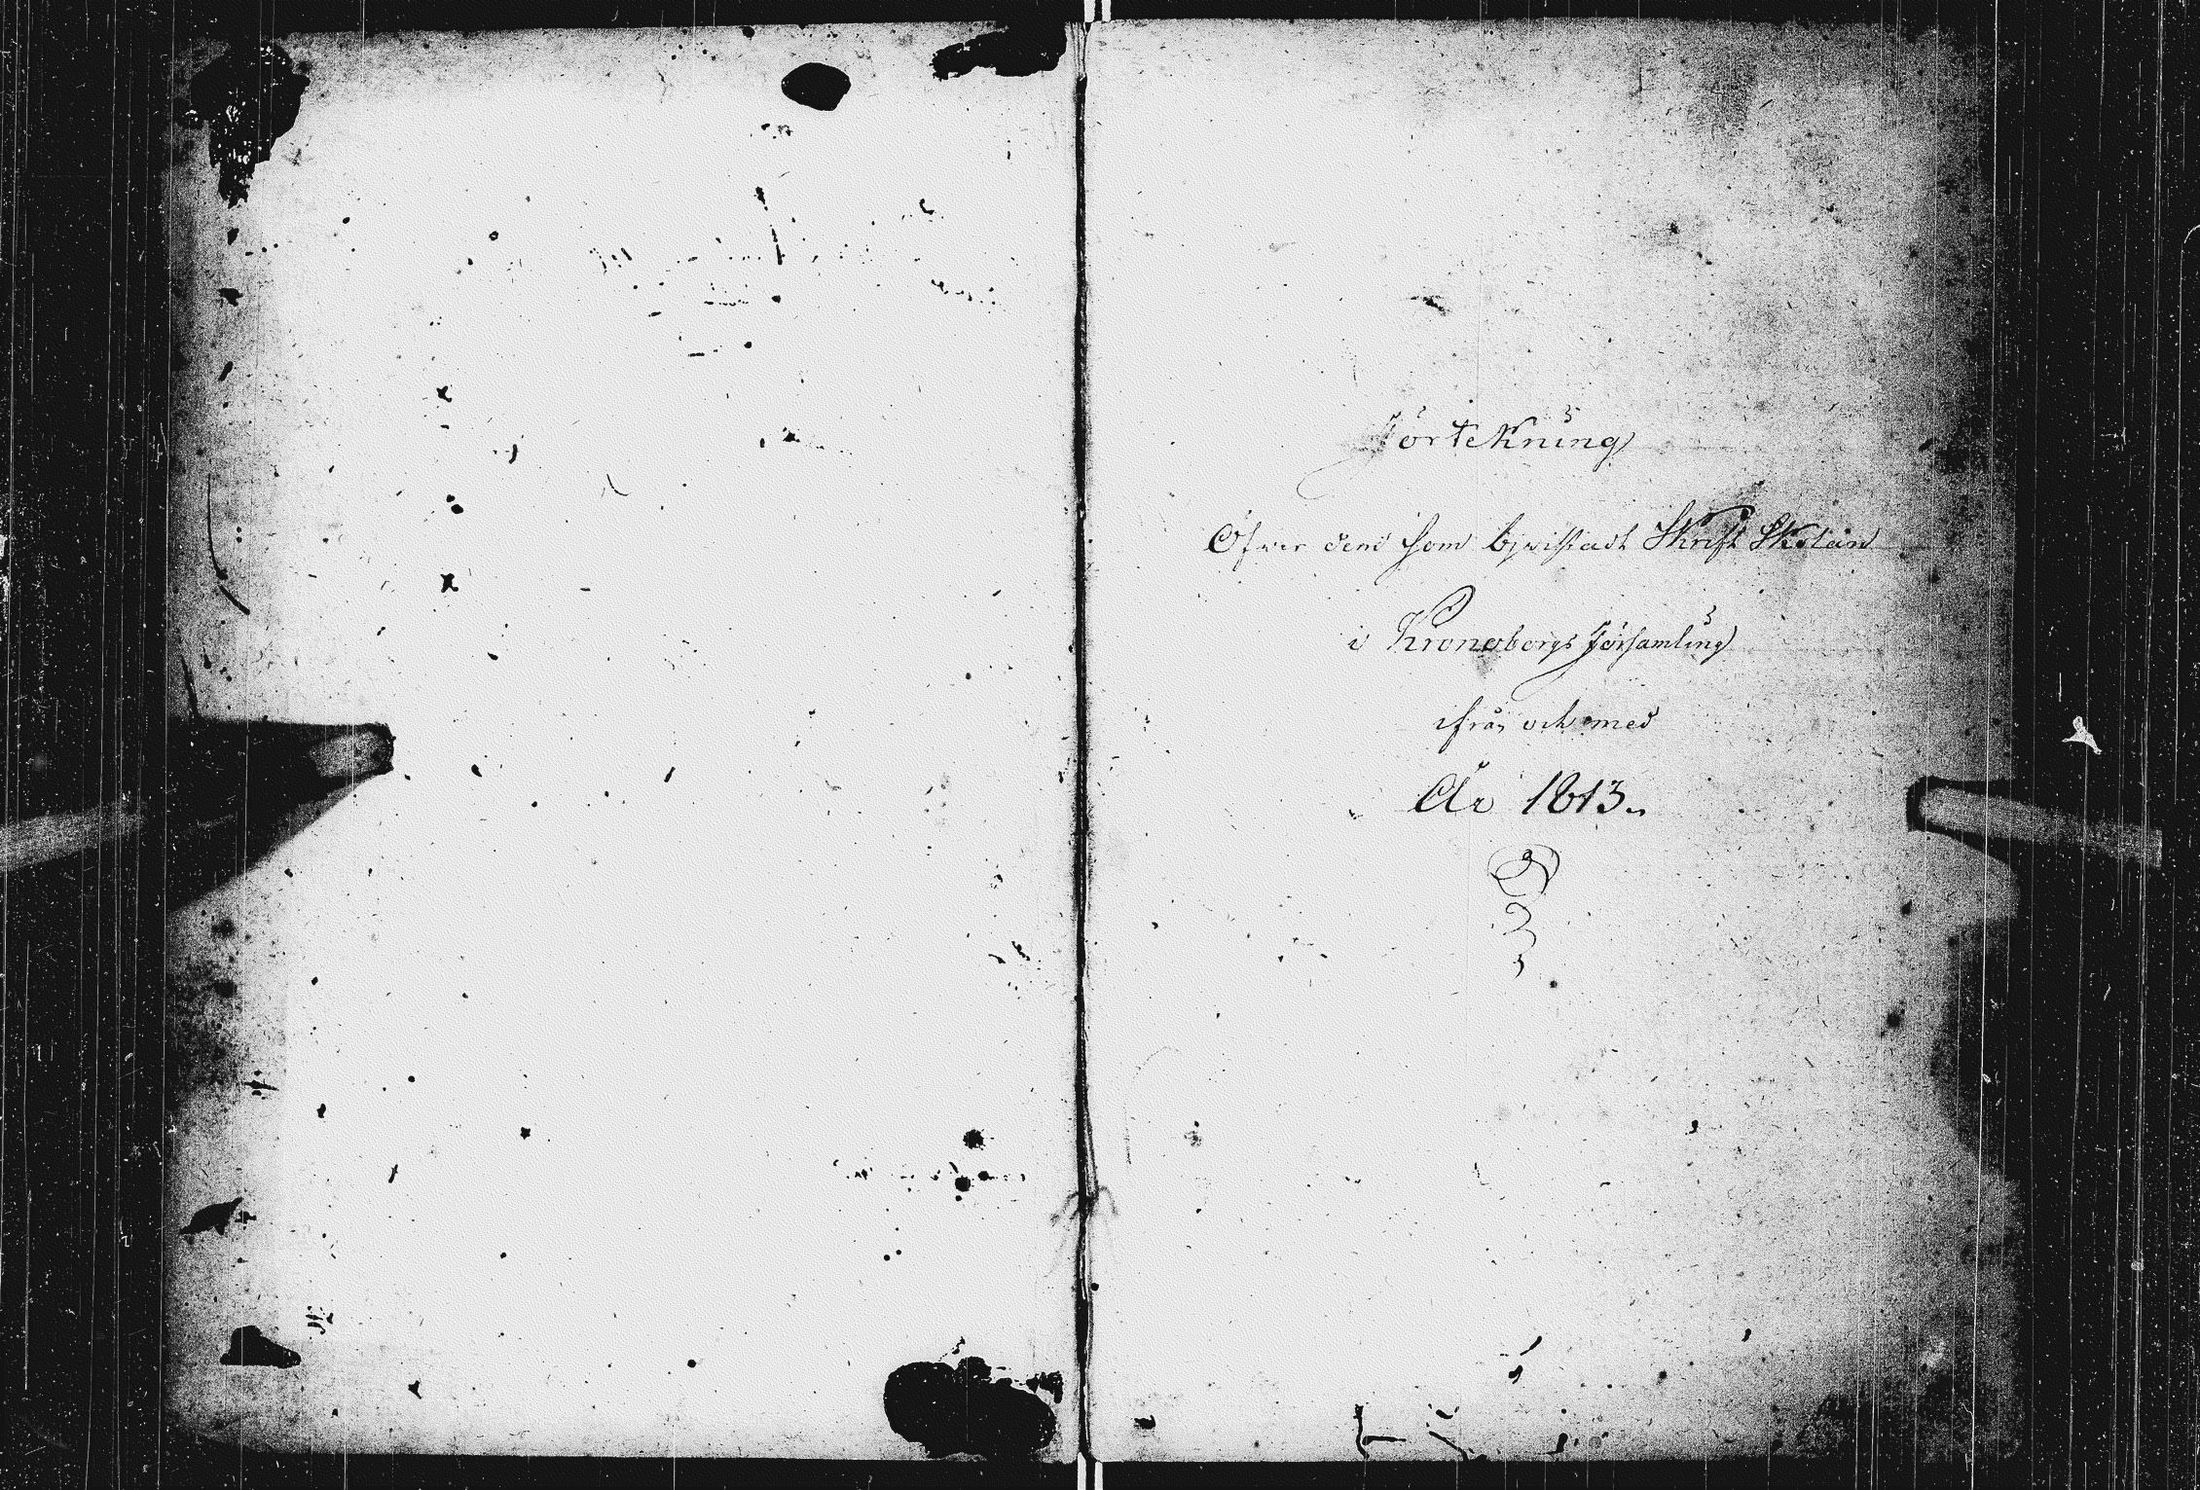 Förtekning
Öfver dem som bjvistadt Skrift Skolan
i Kronoborgs Församling
ifrån och med
År 1813.